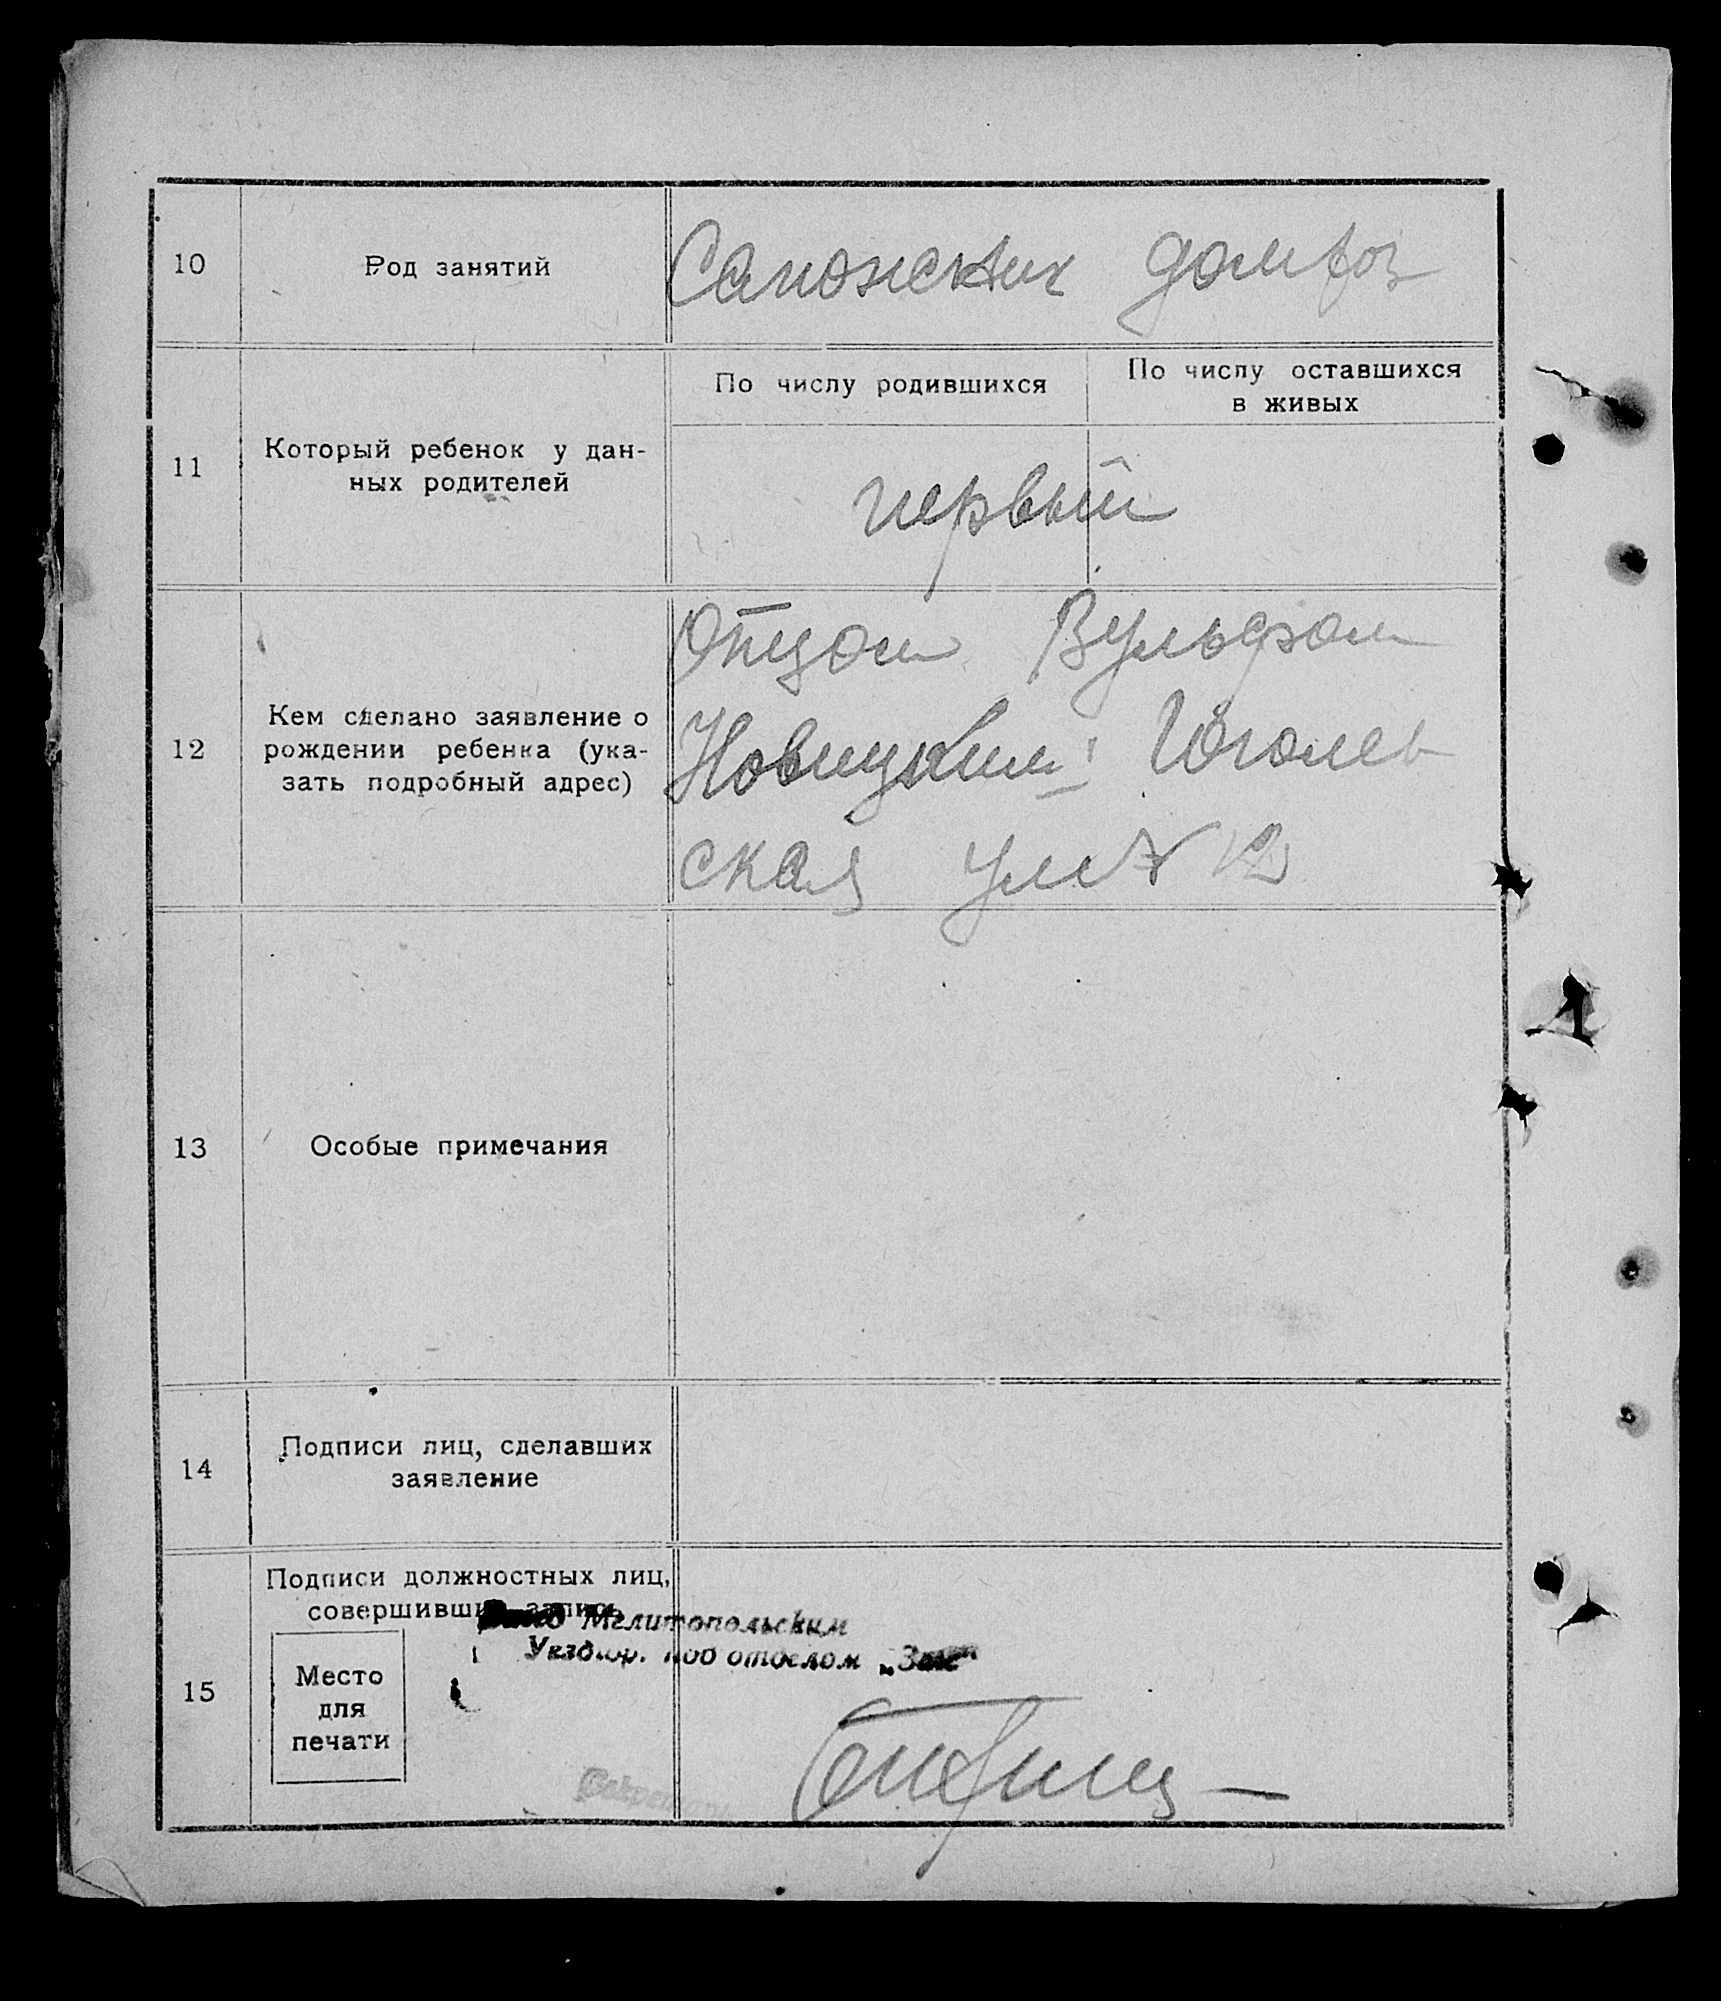 10
Род занятий
Сапожник домхоз
11
Который ребенок у дан-
ных родителей
По числу родившихся
По числу оставшихся
в живых
первый
12
Кем сделано заявление о
рождении ребенка (ука-
зать подробный адрес)
Отцом Вульфом
Новицким Гоголев
ская ул № 12
13
Особые примечания
14
Подписи лиц, сделавших
заявление
15
Подписи должностных лиц,
совершивших запись
Мелитопольским
Уездгор. под отделом „Загс"
Место
для
печати
Секретарь